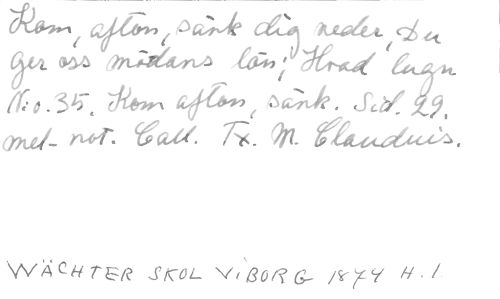 Kom, afton, sänk dig neder, Du
ger oss mödans lön; Hvad lugn
N:o. 35. Kom afton, sänk. Sid. 29.
mel- not. Call. Tx. M. Claudius.
WÄCHTER SKOL VIBORG 1874 H. 1